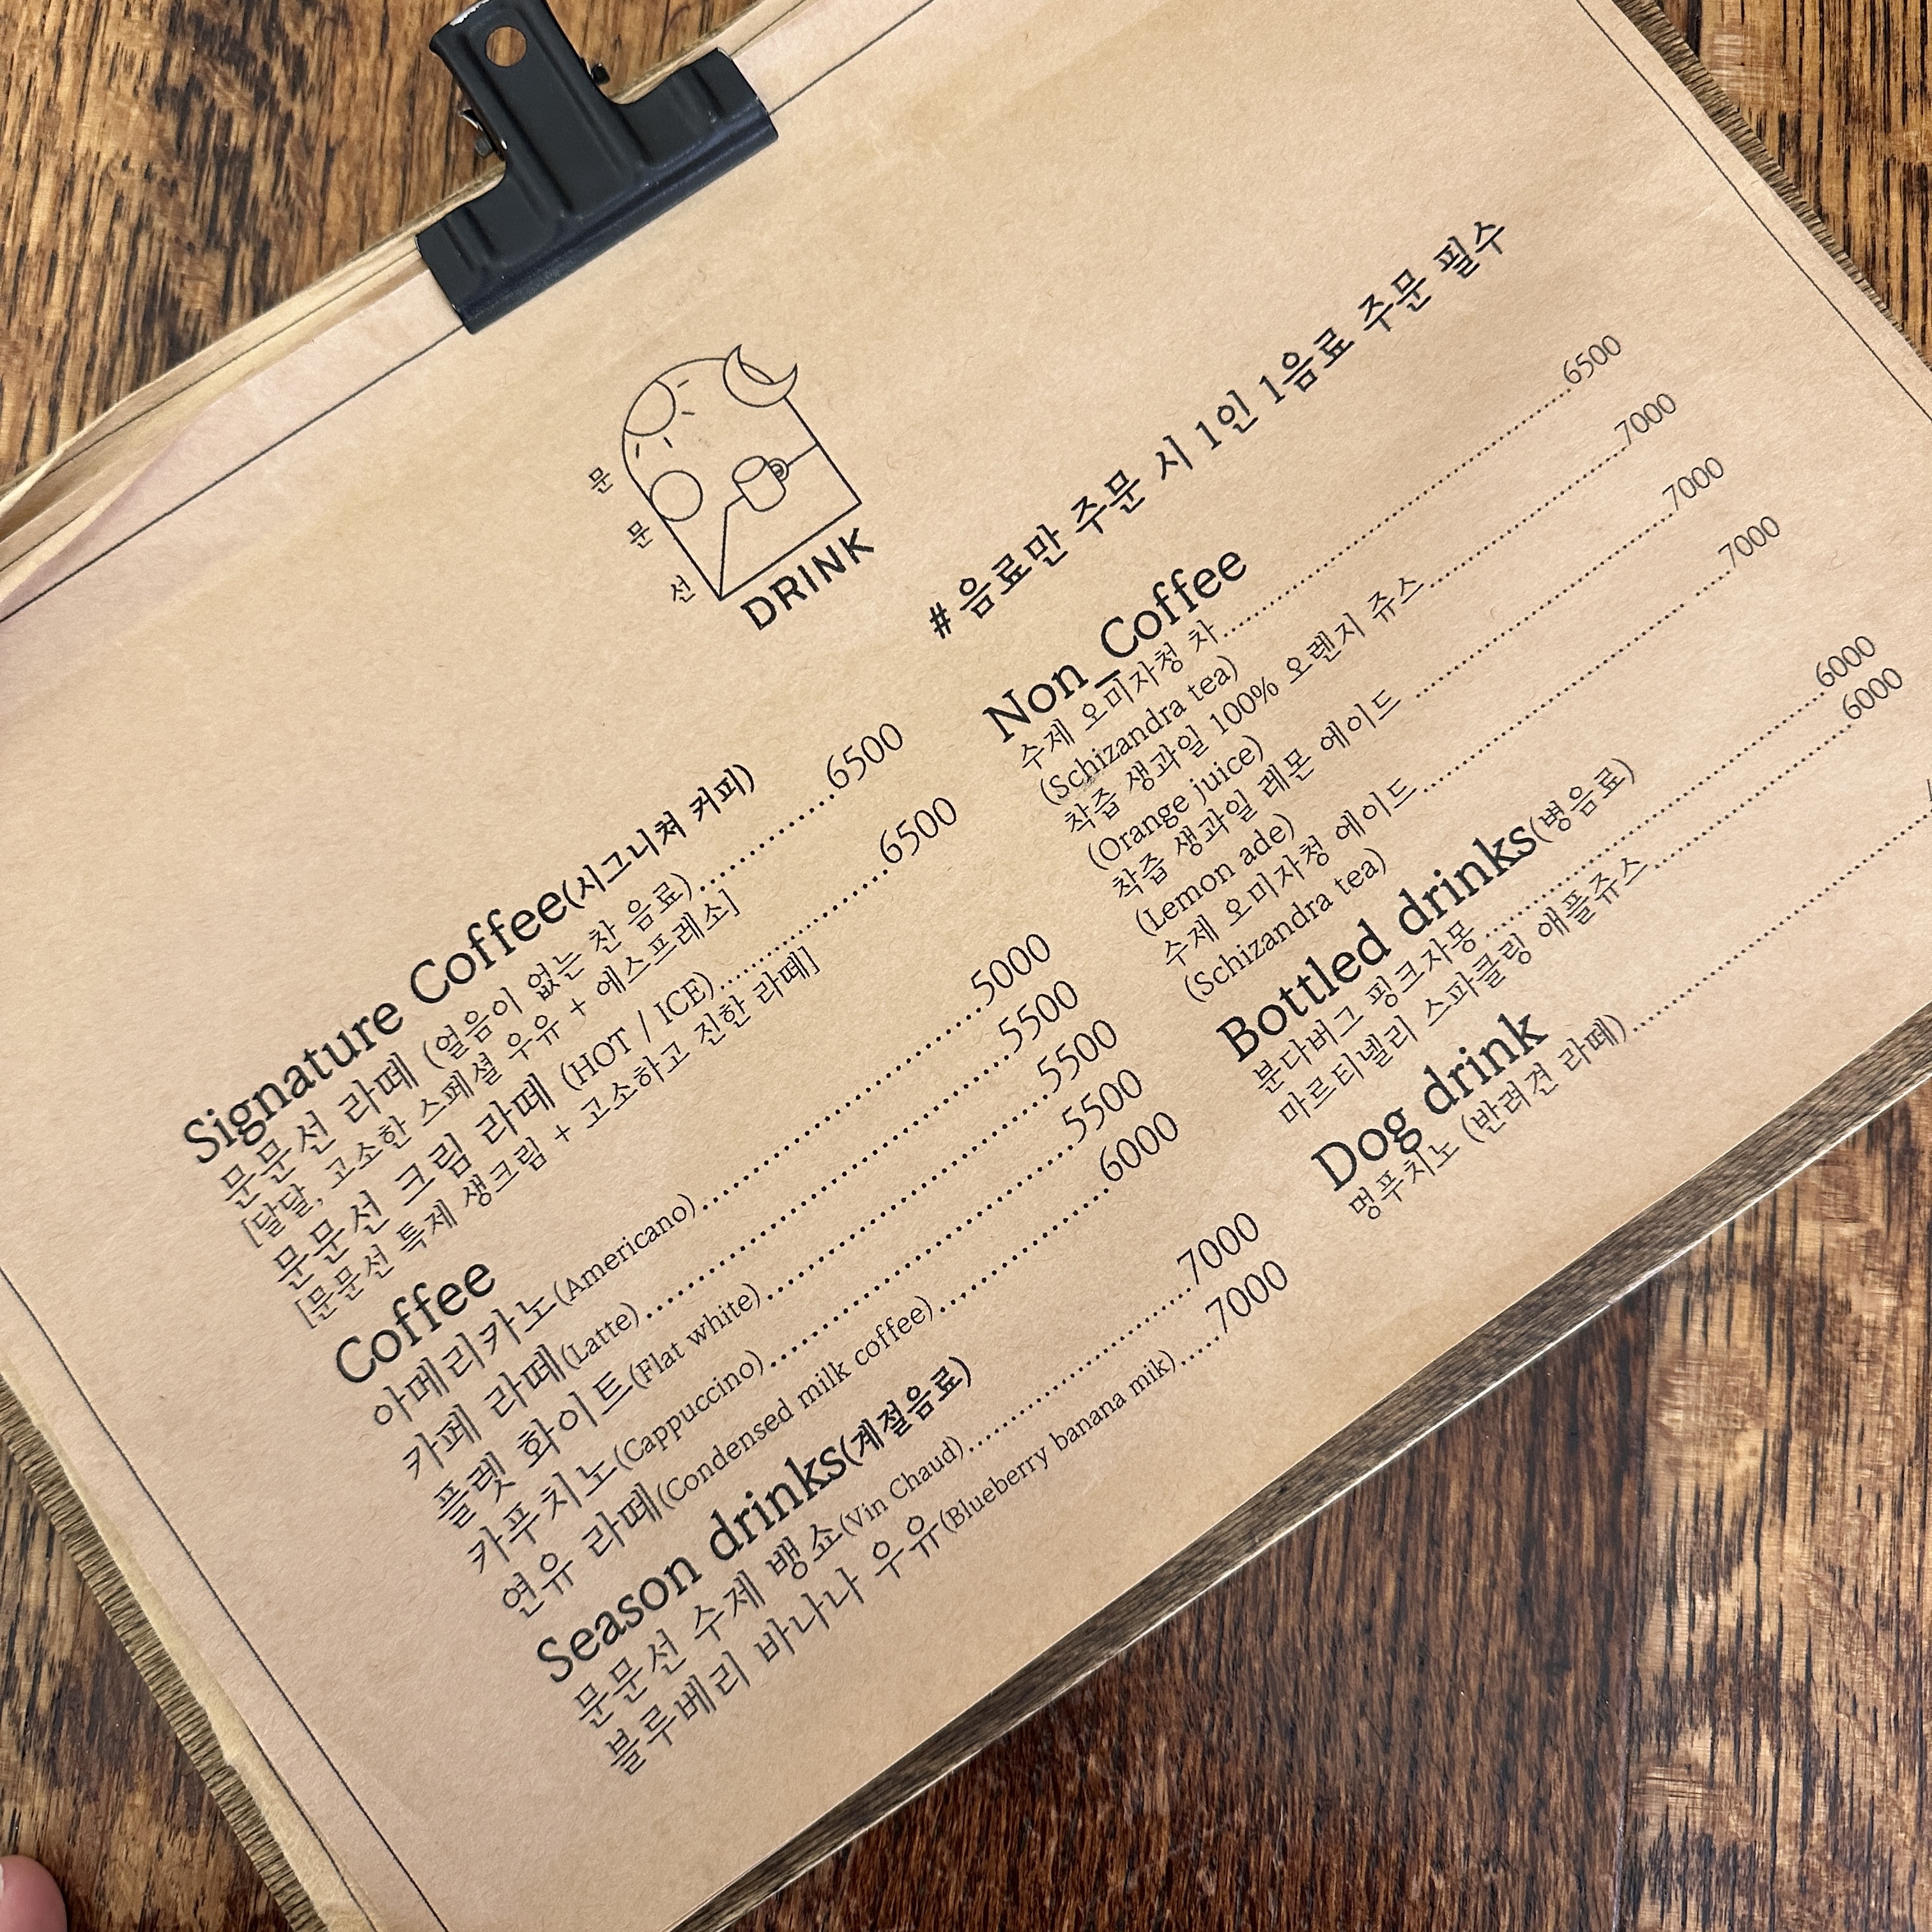 문
문
선
DRINK
# 음료만 주문 시 1인 1음료 주문 필수
Signature Coffee(시그니쳐 커피)
문문선 라떼 (얼음이 없는 찬 음료)..........6500
[달달, 고소한 스페셜 우유 + 에스프레소]
문문선 크림 라떼 (HOT / ICE)..............6500
[문문선 특제 생크림 + 고소하고 진한 라떼]
Coffee
아메리카노(Americano)..........................5000
카페 라떼(Latte)..................................5500
플랫 화이트(Flat white)..........................5500
카푸치노(Cappuccino)............................5500
연유 라떼(Condensed milk coffee)...............6000
Season drinks(계절음료)
문문선 수제 뱅쇼(Vin Chaud).....................7000
블루베리 바나나 우유(Blueberry banana mik).....7000
Non_Coffee
수제 오미자청 차........................................6500
(Schizandra tea)
착즙 생과일 100% 오렌지 쥬스......................7000
(Orange juice)
착즙 생과일 레몬 에이드 ..............................7000
(Lemon ade)
수제 오미자청 에이드..................................7000
(Schizandra tea)
Bottled drinks(병음료)
분다버그 핑크자몽......................................6000
마르티넬리 스파클링 애플쥬스......................6000
Dog drink
멍푸치노 (반려견 라떼)................................